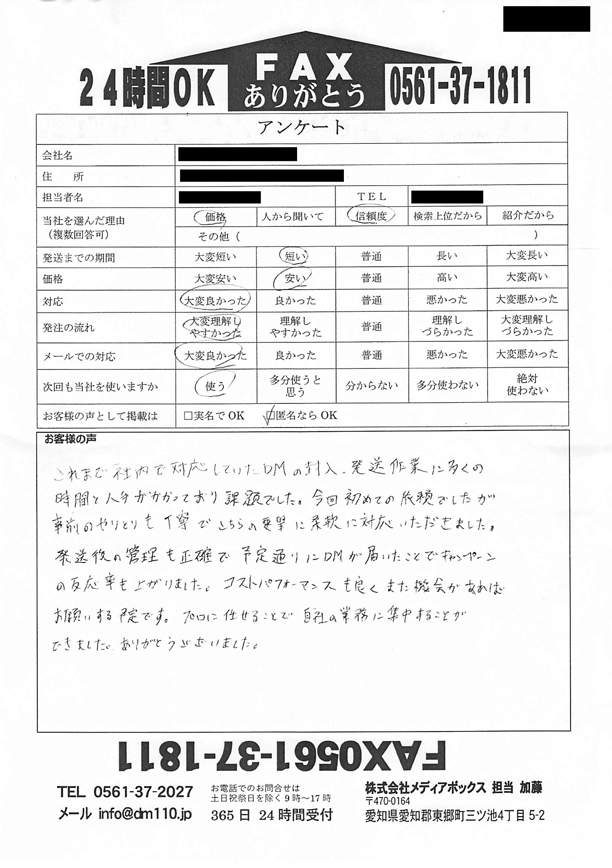 24時間OK
FAX
ありがとう
0561-37-1811
アンケート
会社名
住　所
担当者名　TEL
当社を選んだ理由
（複数回答可）
価格　人から聞いて　信頼度　検索上位だから　紹介だから
その他（　）
発送までの期間　大変短い　短い　普通　長い　大変長い
価格　大変安い　安い　普通　高い　大変高い
対応　大変良かった　良かった　普通　悪かった　大変悪かった
発注の流れ　大変理解しやすかった　理解しやすかった　普通　理解しづらかった　大変理解しづらかった
メールでの対応　大変良かった　良かった　普通　悪かった　大変悪かった
次回も当社を使いますか　使う　多分使うと思う　分からない　多分使わない　絶対使わない
お客様の声として掲載は　□実名でOK　☑匿名ならOK
お客様の声
これまで社内で対応していたDMの封入、発送作業に多くの
時間と人手がかかっており課題でした。今回初めての依頼でしたが
事前のやりとりも丁寧でこちらの要望に柔軟に対応いただきました。
発送後の管理も正確で予定通りにDMが届いたことでキャンペーン
の反応率も上がりました。コストパフォーマンスも良くまた機会があれば
お願いする予定です。プロに任せることで自社の業務に集中することが
できました。ありがとうございました。
FAX0561-37-1811
TEL 0561-37-2027
メール info@dm110.jp
お電話でのお問合せは
土日祝祭日を除く9時～17時
365日 24時間受付
株式会社メディアボックス 担当 加藤
〒470-0164
愛知県愛知郡東郷町三ツ池4丁目5-2